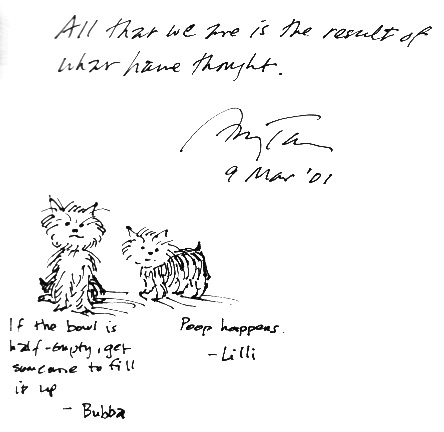 All that we are is the result of
what have thought.
Amy Tan
9 Mar '01
If the bowl is
half-empty, get
someone to fill
it up
- Bubba
Poop happens.
- Lilli